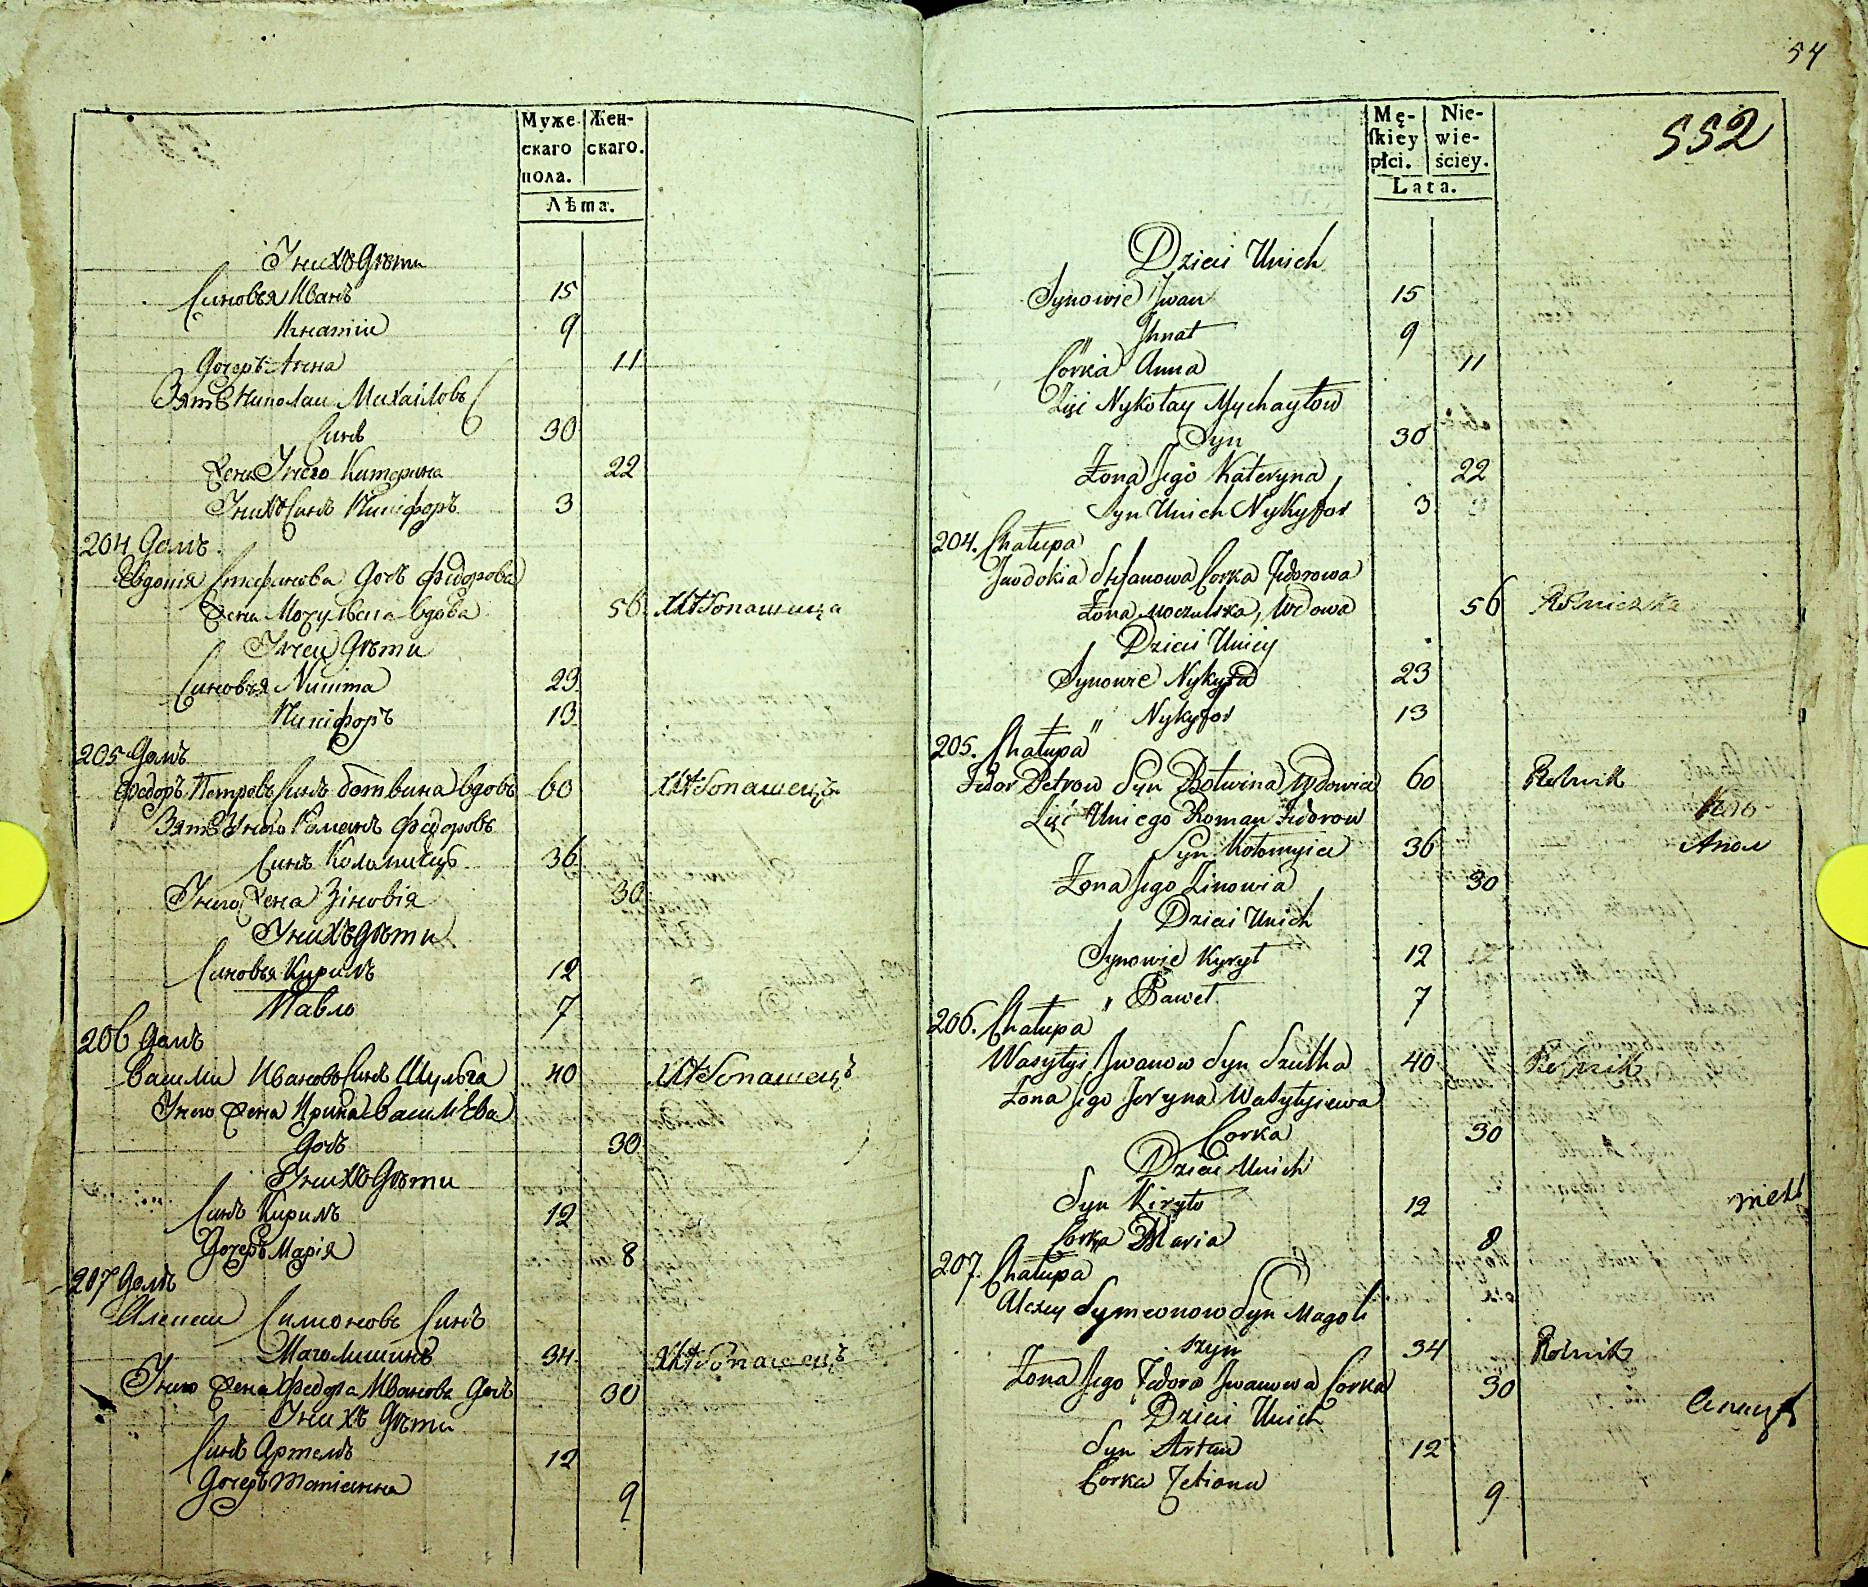 Муже
скаго
пола.
Жен-
скаго.
Лѣта.
У нихъ дѣти
Синовья Иванъ 15
Игнатіи 9
Дочеръ Анна 11
Зять Николаи Михайловъ
Синъ 30
Жена У него Катерина 22
У нихъ Синъ Никифоръ 3
204 Домъ
Евдокія Стефанова Дочь Федорова
Жена Мочульска вдова 56 Хлѣбопашица
У неи Дѣти
Синовья Никита 23
Никифоръ 13
205 Домъ
Федоръ Петровъ Синъ Ботвина вдовъ 60 Хлѣбопашецъ
Зять У него Романъ Федоровъ
Синъ Коломиецъ 36
У него Жена Зіновія 30
У нихъ дѣти
Синовья Кирилъ 12
Павло 7
206 Домъ
Васили Ивановъ Синъ Шульга 40 Хлѣбопашецъ
У него Жена Ирина Васильева
Дочь 30
У нихъ Дѣти
Синъ Кирилъ 12
Дочеръ Марія 8
207 Домъ
Алексеи Симоновъ Синъ
Маголишинъ 34 Хлѣбопашецъ
У него Жена Федора Иванова Дочь 30
У нихъ Дѣти
Синъ Артемъ 12
Дочеръ Татіанна 9
54
552
Mę-
ſkiey
płci.
Nie-
wie-
ściey.
Lata.
Dzieci Unich
Synowie Jwan 15
Jhnat 9
Corka Anna 11
Zięć Nykołay Mychayłow
Syn 30
Żona Jego Kateryna 22
Syn Unich Nykyfor 3
204. Chałupa
Jwdokia Stefanowa Corka Fedorowa
Żona Moczulska, Wdowa 56 Rolniczka
Dzieci Uniey
Synowie Nykyta 23
Nykyfor 13
205. Chałupa
Fedor Petrow Syn Botwina Wdowiec 60 Rolnik
Zięć Uniego Roman Fedorow
Syn Kołomyiec 36
Żona Jego Zinowia 30
Dzieci Unich
Synowie Kyrył 12
Paweł 7
206. Chałupa
Wasylyi Jwanow Syn Szulha 40 Rolnik
Żona Jego Jeryna Wasylyiewa
Corka 30
Dzieci Unich
Syn Kiryło 12
Corka Maria 8
207. Chałupa
Alexey Symeonow Syn Magoli
szyn 34 Rolnik
Żona Jego Fedora Jwanowa Corka 30
Dzieci Unich
Syn Artem 12
Corka Tetiana 9